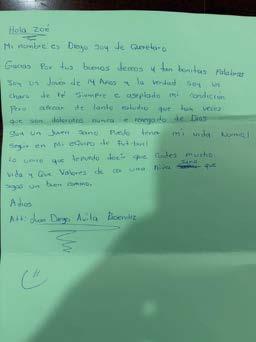 Hola Zoé
Mi nombre es Diego soy de Queretaro
Gracias Por tus buenos deceos y tan bonitas Palabras
Soy un Joven de 14 Años y la verdad soy un
chavo de fé siempre e aseptado mi condición
Pero apesar de tanto estudio que hay veces
que son dolorosos nunca e renegado de Dios
Soy un Joven sano Puedo tener mi vida Normal
Seguir en mi equipo de Fut-bol
Lo unico que te puedo decir que Pides mucho
Vida y Que Valores de ca una Niña sana que
sigas un buen camino.
Adios
Att: Juan Diego Avila